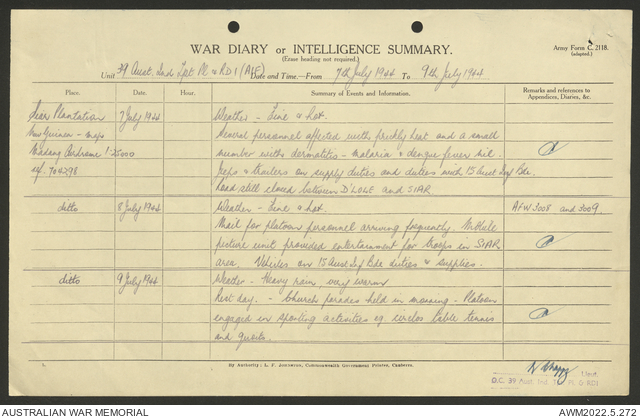 WAR DIARY or INTELLIGENCE SUMMARY.
(Erase heading not required.)
Army Form C. 2118.
(adapted.)
Unit 39 Aust. Ind Tpt Pl & RD1 (AIF) Date and Time—From 7th July 1944 To 9th July 1944
Place. Date. Hour. Summary of Events and Information. Remarks and references to Appendices, Diaries, &c.
Siar Plantation 7 July 1944 Weather - Fine & hot.
New Guinea - map Several personnel affected with prickly heat and a small
Madang Aerdrome 1-25000 number with dermatitis - malaria & dengue fever nil.
ref. 704298 Jeeps & trailers on supply duties and duties with 15 Aust Inf Bde.
Road still closed between and SIAR
ditto 8 July 1944 Weather - Fine & hot. AFW 3008 and 3009.
Mail for platoon personnel arriving frequently. Mobile
picture unit provided entertainment for troops in SIAR
area. Vehicles on 15 Aust Inf Bde duties & supplies.
ditto 9 July 1944 Weather - Heavy rain, very warm
Rest day. - Church parades held in morning - Platoon
engaged in sporting activities eg. table tennis
and quoits.
Lieut.
O.C. 39 Aust. Ind. Pl & RD1
1. By Authority: L. F. Johnston, Commonwealth Government Printer, Canberra.
AUSTRALIAN WAR MEMORIAL
AWM2022.5.272